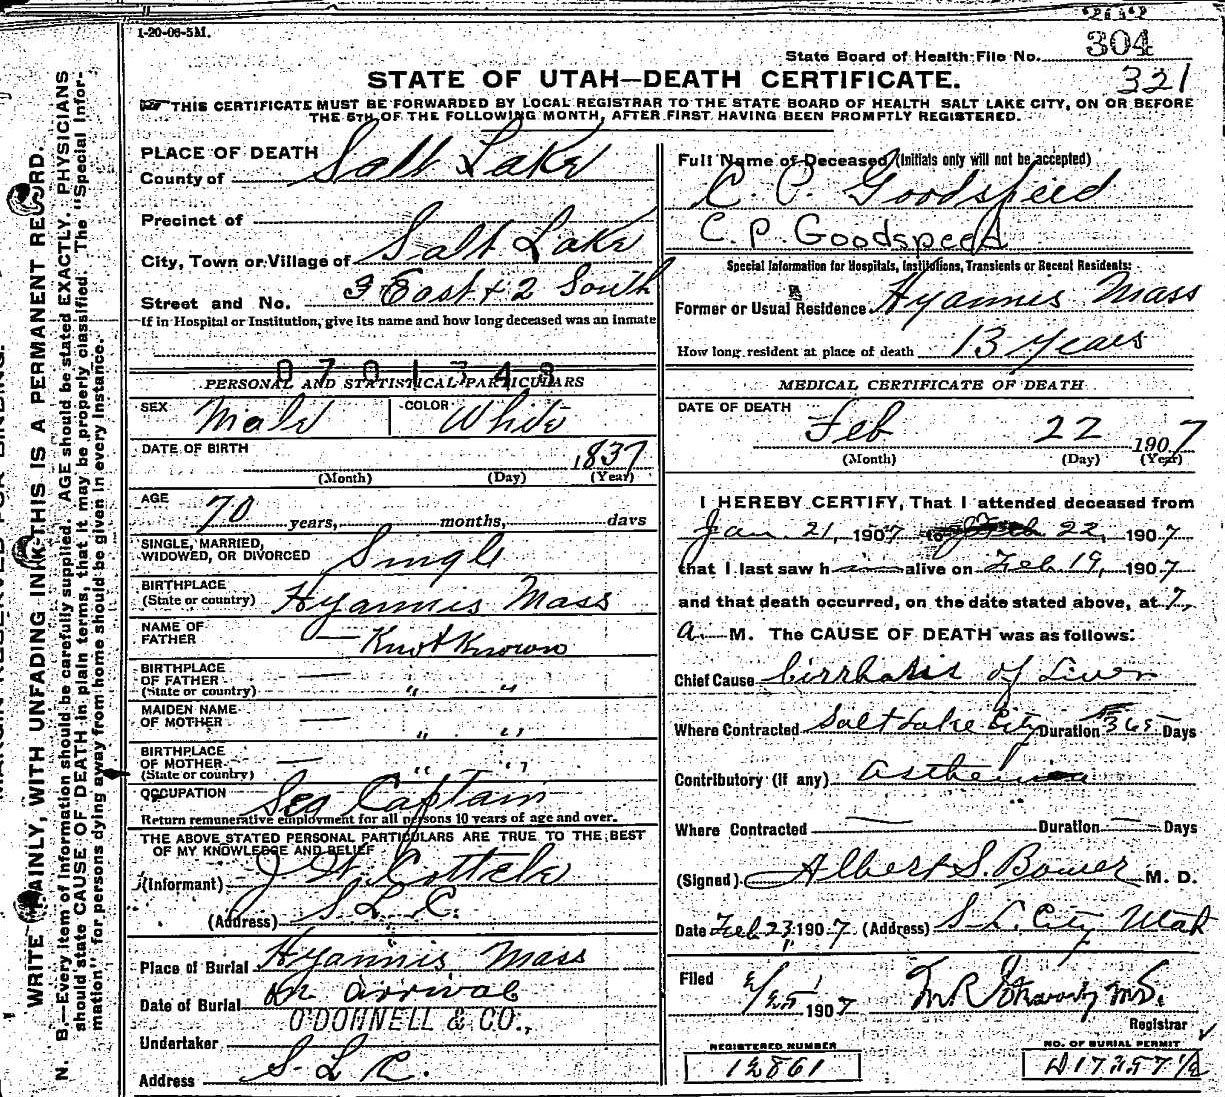 1-20-06-5M.
304
State Board of Health File No.
321
STATE OF UTAH—DEATH CERTIFICATE.
THIS CERTIFICATE MUST BE FORWARDED BY LOCAL REGISTRAR TO THE STATE BOARD OF HEALTH SALT LAKE CITY, ON OR BEFORE
THE 5TH OF THE FOLLOWING MONTH, AFTER FIRST HAVING BEEN PROMPTLY REGISTERED.
WRITE PLAINLY, WITH UNFADING INK—THIS IS A PERMANENT RECORD.
N. B.—Every item of information should be carefully supplied. AGE should be stated EXACTLY. PHYSICIANS
should state CAUSE OF DEATH in plain terms, that it may be properly classified. The "Special Infor-
mation" for persons dying away from home should be given in every instance.
PLACE OF DEATH
County of Salt Lake
Precinct of
City, Town or Village of Salt Lake
Street and No. 3 East & 2 South
If in Hospital or Institution, give its name and how long deceased was an Inmate
0701343
PERSONAL AND STATISTICAL PARTICULARS
SEX Male COLOR White
DATE OF BIRTH 1837
(Month) (Day) (Year)
AGE 70 years, months, days
SINGLE, MARRIED,
WIDOWED, OR DIVORCED Single
BIRTHPLACE
(State or country) Hyannis Mass
NAME OF
FATHER — Knot Known
BIRTHPLACE
OF FATHER —
(State or country) " "
MAIDEN NAME
OF MOTHER — " "
BIRTHPLACE
OF MOTHER —
(State or country) " "
OCCUPATION Sea Captain
Return remunerative employment for all persons 10 years of age and over.
THE ABOVE STATED PERSONAL PARTICULARS ARE TRUE TO THE BEST
OF MY KNOWLEDGE AND BELIEF
(Informant) J. W.
(Address) S. L. C.
Place of Burial Hyannis Mass
Date of Burial On arrival
O'DONNELL & CO.,
Undertaker
Address S. L. C.
Full Name of Deceased (Initials only will not be accepted)
C. P. Goodspeed
C. P. Goodspeed
Special Information for Hospitals, Institutions, Transients or Recent Residents:
Former or Usual Residence Hyannis Mass
How long resident at place of death 13 Years
MEDICAL CERTIFICATE OF DEATH
DATE OF DEATH
Feb 22 1907
(Month) (Day) (Year)
I HEREBY CERTIFY, That I attended deceased from
Jan. 21, 1907 to Feb 22, 1907
that I last saw him alive on Feb 19, 1907
and that death occurred, on the date stated above, at 7,
a. M. The CAUSE OF DEATH was as follows:
Chief Cause Cirrhosis of Liver
Where Contracted Salt Lake City Duration 365 Days
Contributory (if any) asthenia
Where Contracted — Duration — Days
(Signed) Albert S. Bower M. D.
Date Feb 23, 1907 (Address) S. L. City Utah
Filed 2/25 1907 M.D.
Registrar
REGISTERED NUMBER
12861
NO. OF BURIAL PERMIT
D17357½